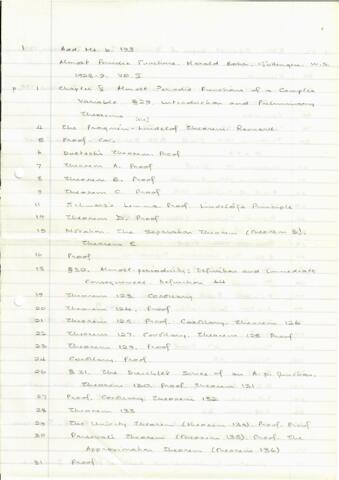 1 Add. Ms. b. 133
Almost Periodic Functions. Harald Bohr. Göttingen. W.S.
1928-9. Vol. I
p. 1 Chapter 8 Almost Periodic Functions of a Complex
Variable. §29. Introduction and Preliminary
Theorems
4 The Phragmén-Lindelöf Theorem: Remark
5 Proof. Cor.
6 Doetsch's Theorem. Proof
7 Theorem A. Proof
8 Theorem B. Proof
9 Theorem C. Proof
11 Schwarz's Lemma. Proof. Lindelöf's Principle
14 Theorem D. Proof
15 Notation. The Separation Theorem (Theorem E).
Theorem E
16 Proof
18 §30. Almost-periodicity: Definition and Immediate
Consequences. Definition 44
19 Theorem 123. Corollary
20 Theorem 124. Proof
21 Theorem 125. Proof. Corollary. Theorem 126
22 Theorem 127. Corollary. Theorem 128. Proof
23 Theorem 129. Proof
24 Corollary. Proof
26 §31. The Dirichlet Series of an A.p. function.
Theorem 130. Proof. Theorem 131
27 Proof. Corollary. Theorem 132
28 Theorem 133
29 The Unicity Theorem (Theorem 134). Proof. Proof
30 Parseval's Theorem (Theorem 135). Proof. The
Approximation Theorem (Theorem 136)
31 Proof